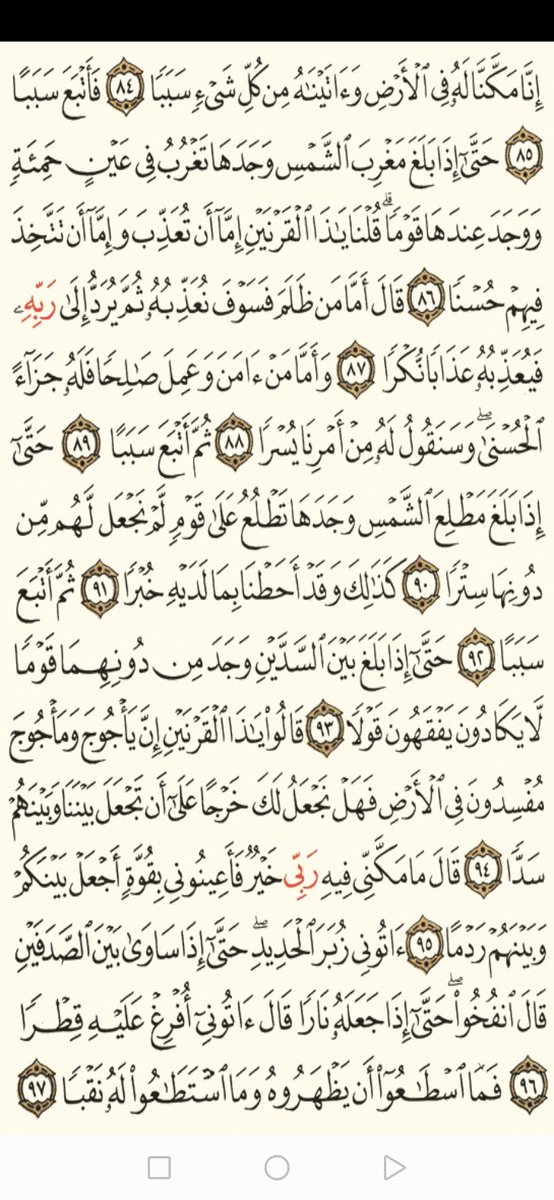 إِنَّا مَكَّنَّا لَهُۥ فِي ٱلۡأَرۡضِ وَءَاتَيۡنَٰهُ مِن كُلِّ شَيۡءٖ سَبَبٗا ٨٤ فَأَتۡبَعَ سَبَبًا
٨٥ حَتَّىٰٓ إِذَا بَلَغَ مَغۡرِبَ ٱلشَّمۡسِ وَجَدَهَا تَغۡرُبُ فِي عَيۡنٍ حَمِئَةٖ
وَوَجَدَ عِندَهَا قَوۡمٗاۖ قُلۡنَا يَٰذَا ٱلۡقَرۡنَيۡنِ إِمَّآ أَن تُعَذِّبَ وَإِمَّآ أَن تَتَّخِذَ
فِيهِمۡ حُسۡنٗا ٨٦ قَالَ أَمَّا مَن ظَلَمَ فَسَوۡفَ نُعَذِّبُهُۥ ثُمَّ يُرَدُّ إِلَىٰ رَبِّهِۦ
فَيُعَذِّبُهُۥ عَذَابٗا نُّكۡرٗا ٨٧ وَأَمَّا مَنۡ ءَامَنَ وَعَمِلَ صَٰلِحٗا فَلَهُۥ جَزَآءً
ٱلۡحُسۡنَىٰۖ وَسَنَقُولُ لَهُۥ مِنۡ أَمۡرِنَا يُسۡرٗا ٨٨ ثُمَّ أَتۡبَعَ سَبَبًا ٨٩ حَتَّىٰٓ
إِذَا بَلَغَ مَطۡلِعَ ٱلشَّمۡسِ وَجَدَهَا تَطۡلُعُ عَلَىٰ قَوۡمٖ لَّمۡ نَجۡعَل لَّهُم مِّن
دُونِهَا سِتۡرٗا ٩٠ كَذَٰلِكَۖ وَقَدۡ أَحَطۡنَا بِمَا لَدَيۡهِ خُبۡرٗا ٩١ ثُمَّ أَتۡبَعَ
سَبَبًا ٩٢ حَتَّىٰٓ إِذَا بَلَغَ بَيۡنَ ٱلسَّدَّيۡنِ وَجَدَ مِن دُونِهِمَا قَوۡمٗا
لَّا يَكَادُونَ يَفۡقَهُونَ قَوۡلٗا ٩٣ قَالُواْ يَٰذَا ٱلۡقَرۡنَيۡنِ إِنَّ يَأۡجُوجَ وَمَأۡجُوجَ
مُفۡسِدُونَ فِي ٱلۡأَرۡضِ فَهَلۡ نَجۡعَلُ لَكَ خَرۡجًا عَلَىٰٓ أَن تَجۡعَلَ بَيۡنَنَا وَبَيۡنَهُمۡ
سَدّٗا ٩٤ قَالَ مَا مَكَّنِّي فِيهِ رَبِّي خَيۡرٞ فَأَعِينُونِي بِقُوَّةٍ أَجۡعَلۡ بَيۡنَكُمۡ
وَبَيۡنَهُمۡ رَدۡمًا ٩٥ ءَاتُونِي زُبَرَ ٱلۡحَدِيدِۖ حَتَّىٰٓ إِذَا سَاوَىٰ بَيۡنَ ٱلصَّدَفَيۡنِ
قَالَ ٱنفُخُواْۖ حَتَّىٰٓ إِذَا جَعَلَهُۥ نَارٗا قَالَ ءَاتُونِيٓ أُفۡرِغۡ عَلَيۡهِ قِطۡرٗا
٩٦ فَمَا ٱسۡطَٰعُوٓاْ أَن يَظۡهَرُوهُ وَمَا ٱسۡتَطَٰعُواْ لَهُۥ نَقۡبٗا ٩٧